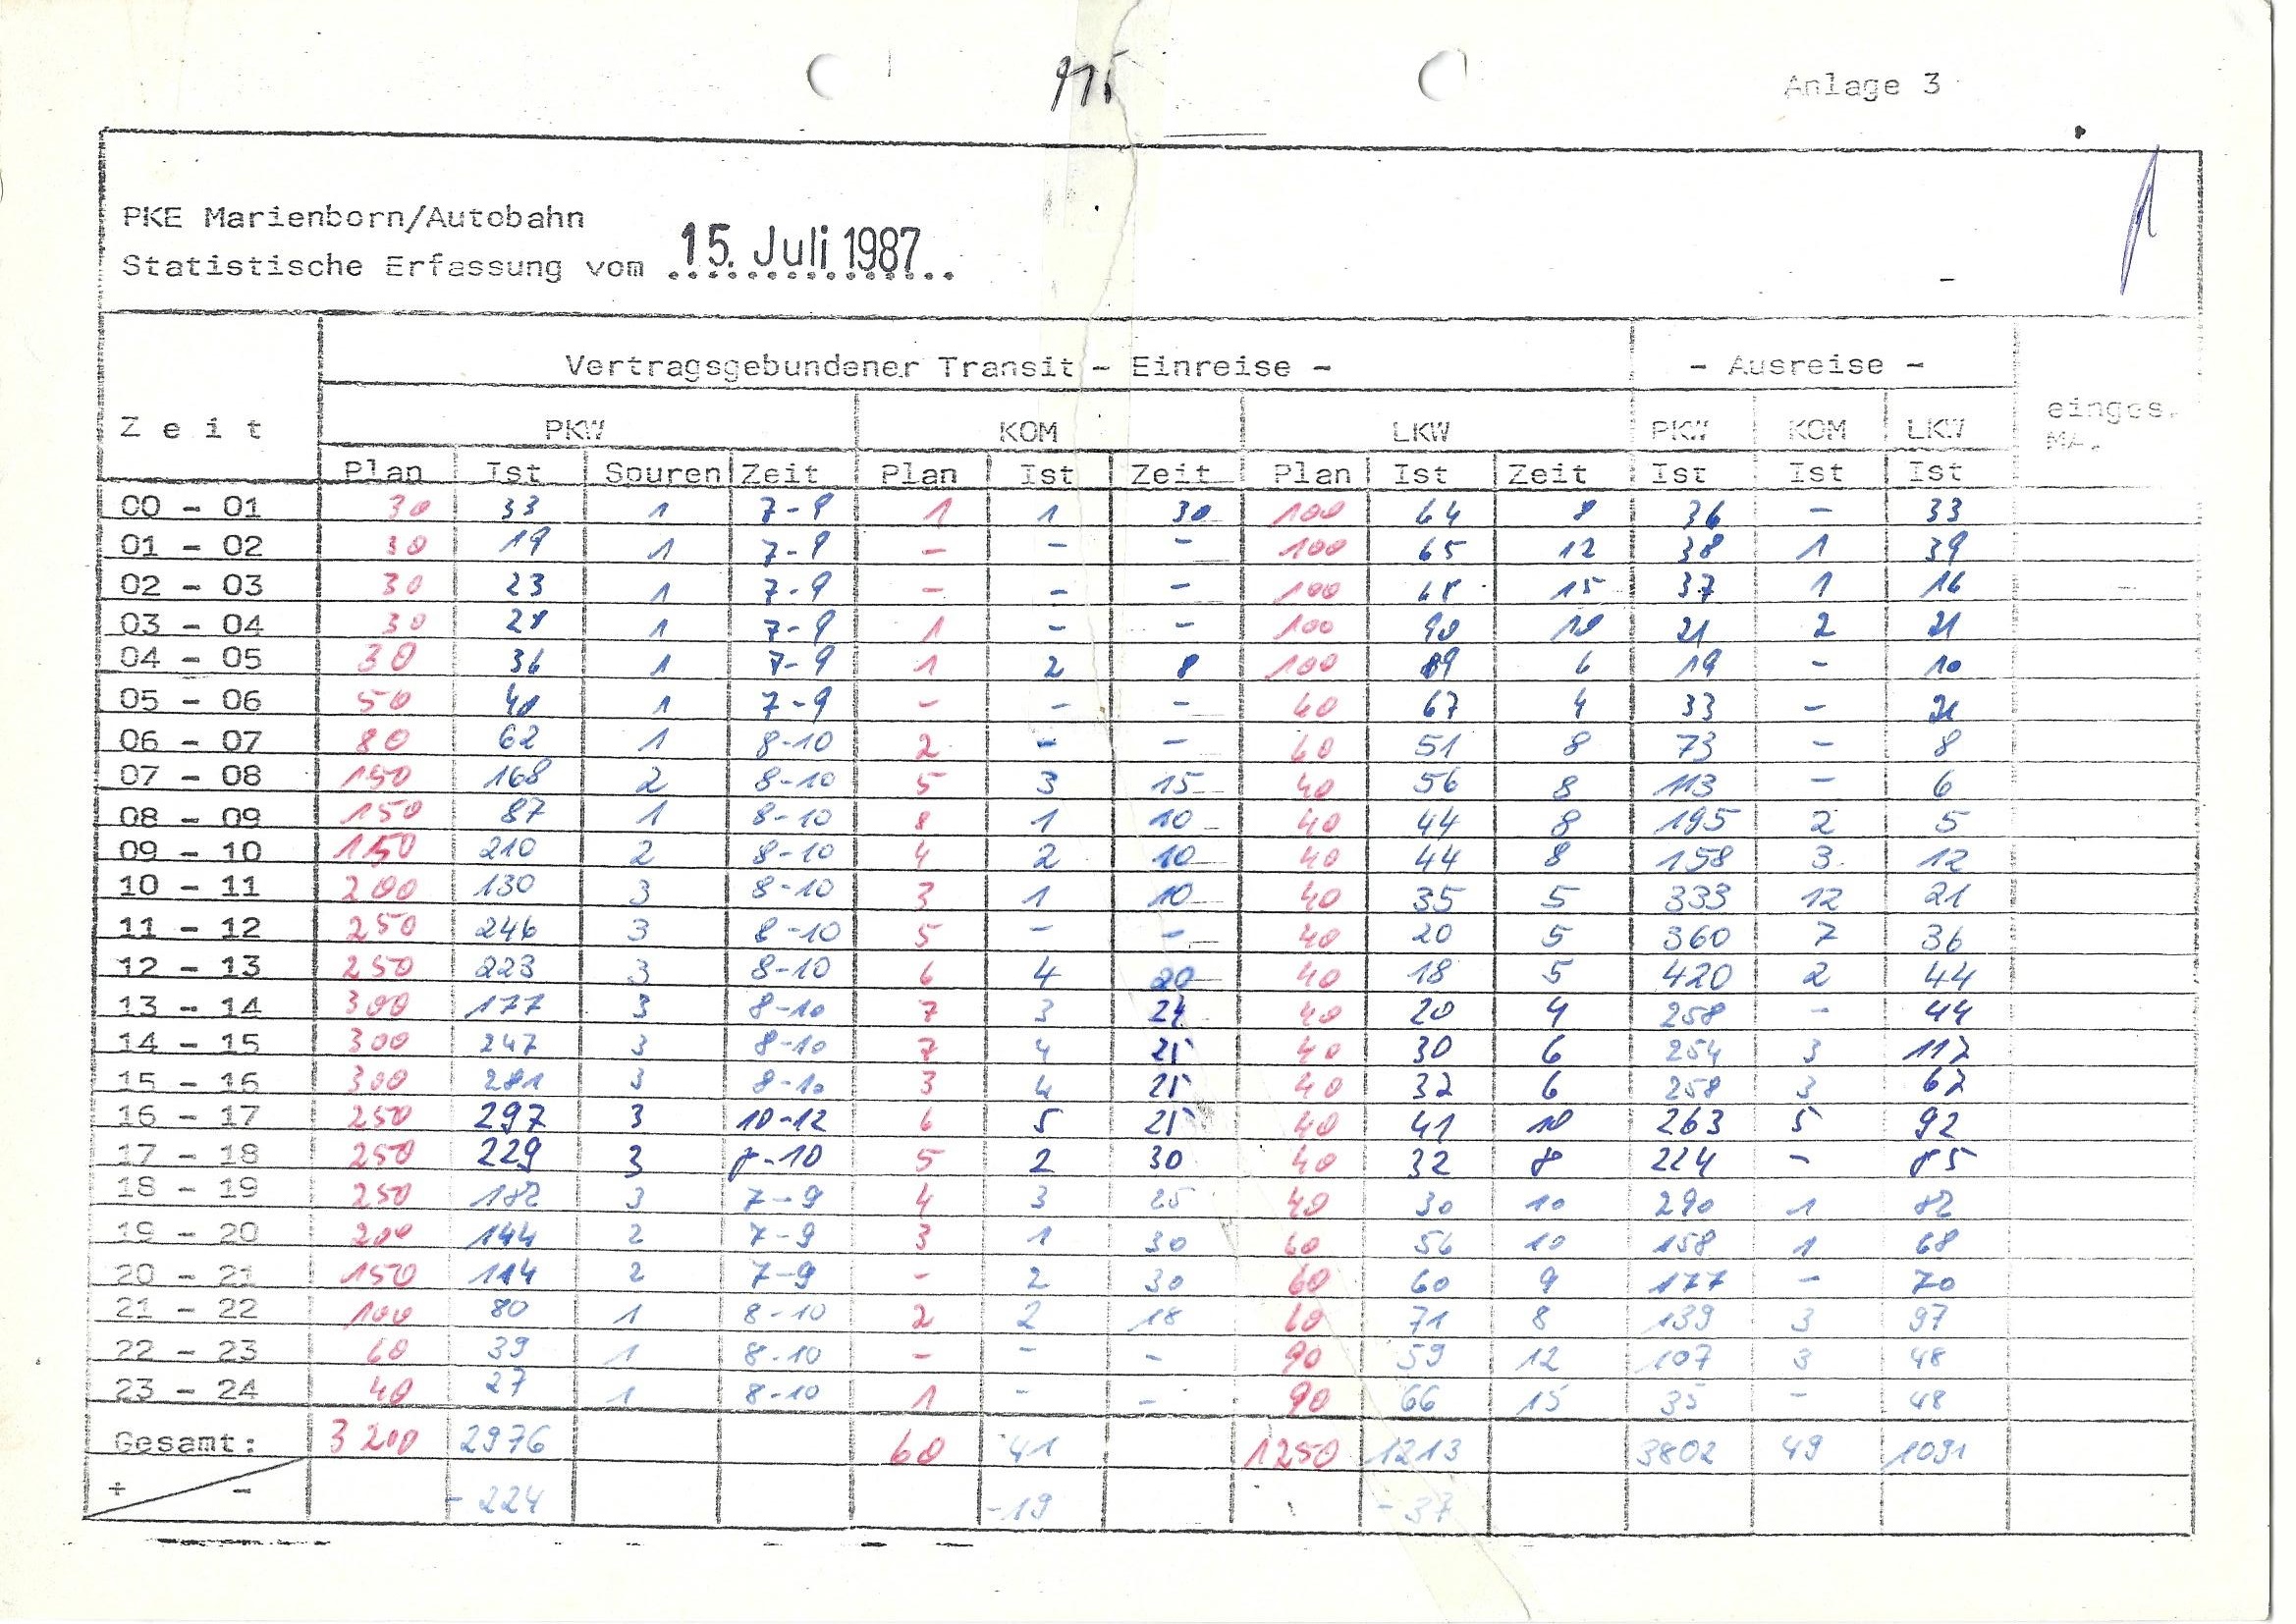 975
Anlage 3
PKE Marienborn/Autobahn
Statistische Erfassung vom 15. Juli 1987
Vertragsgebundener Transit - Einreise - - Ausreise -
Z e i t PKW KOM LKW PKW KOM LKW einges. MA.
Plan Ist Spuren Zeit Plan Ist Zeit Plan Ist Zeit Ist Ist Ist
00 - 01 30 33 1 7-9 1 1 30 100 64 8 36 - 33
01 - 02 30 19 1 7-9 - - - 100 65 12 38 1 39
02 - 03 30 23 1 7-9 - - - 100 68 15 37 1 16
03 - 04 30 28 1 7-9 1 - - 100 90 10 21 2 21
04 - 05 30 36 1 7-9 1 2 8 100 89 6 19 - 10
05 - 06 50 1 7-9 - - - 67 4 33 - 21
06 - 07 80 62 1 8-10 2 - - 60 51 8 73 - 8
07 - 08 150 168 2 8-10 5 3 15 40 56 8 113 - 6
08 - 09 150 87 1 8-10 8 1 10 40 44 8 195 2 5
09 - 10 150 210 2 8-10 4 2 10 40 44 8 158 3 12
10 - 11 200 130 3 8-10 3 1 10 40 35 5 333 12 21
11 - 12 250 246 3 8-10 5 - - 40 20 5 360 7 36
12 - 13 250 223 3 8-10 6 4 20 40 18 5 420 2 44
13 - 14 300 177 3 8-10 7 3 24 40 20 4 258 - 44
14 - 15 300 247 3 8-10 7 4 25 40 30 6 254 3 117
15 - 16 300 281 3 8-10 3 4 25 40 32 6 258 3 67
16 - 17 250 297 3 10-12 6 5 25 40 41 10 263 5 92
17 - 18 250 229 3 8-10 5 2 30 40 32 8 224 - 85
18 - 19 250 182 3 7-9 4 3 25 40 30 10 290 1 82
19 - 20 200 144 2 7-9 3 1 30 60 56 10 158 1 68
20 - 21 150 114 2 7-9 - 2 30 60 60 9 177 - 70
21 - 22 100 80 1 8-10 2 2 18 60 71 8 139 3 97
22 - 23 60 39 1 8-10 - - - 90 59 12 107 3 48
23 - 24 40 27 1 8-10 1 - - 90 66 15 35 - 48
Gesamt: 3200 2976 60 41 1250 1213 3802 49 1091
+ - - 224 -19 - 37